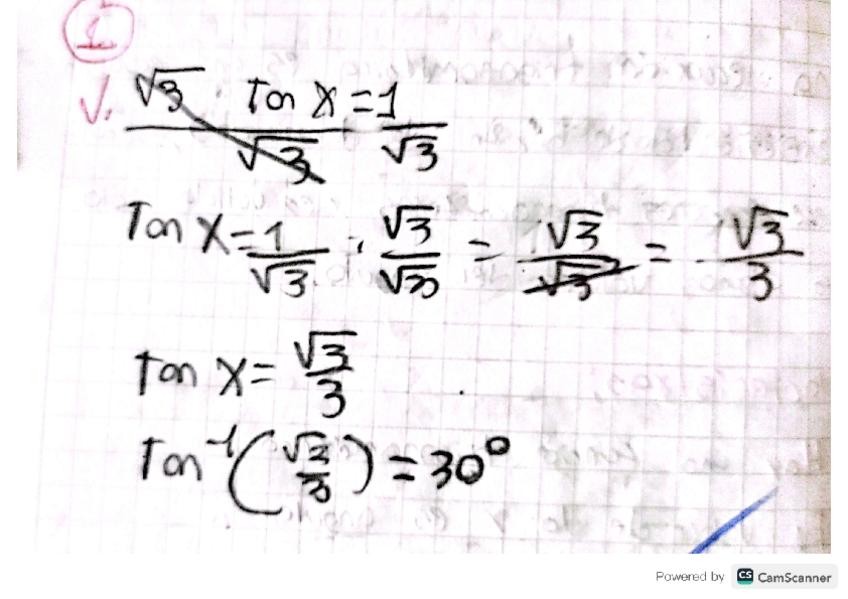 1
√. √3 Tan X = 1
√3 √3
Tan X = 1/√3 · √3/√3 = √3/√3 = √3/3
Tan X = √3/3
Tan⁻¹(√3/3) = 30°
Powered by CS CamScanner